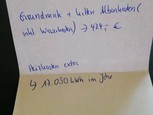 Grundmiete + kalten Nebenkosten (
inkl. Warmwasser) → 424,- €
Heizkosten extra
↳ 17.050 kWh im Jahr